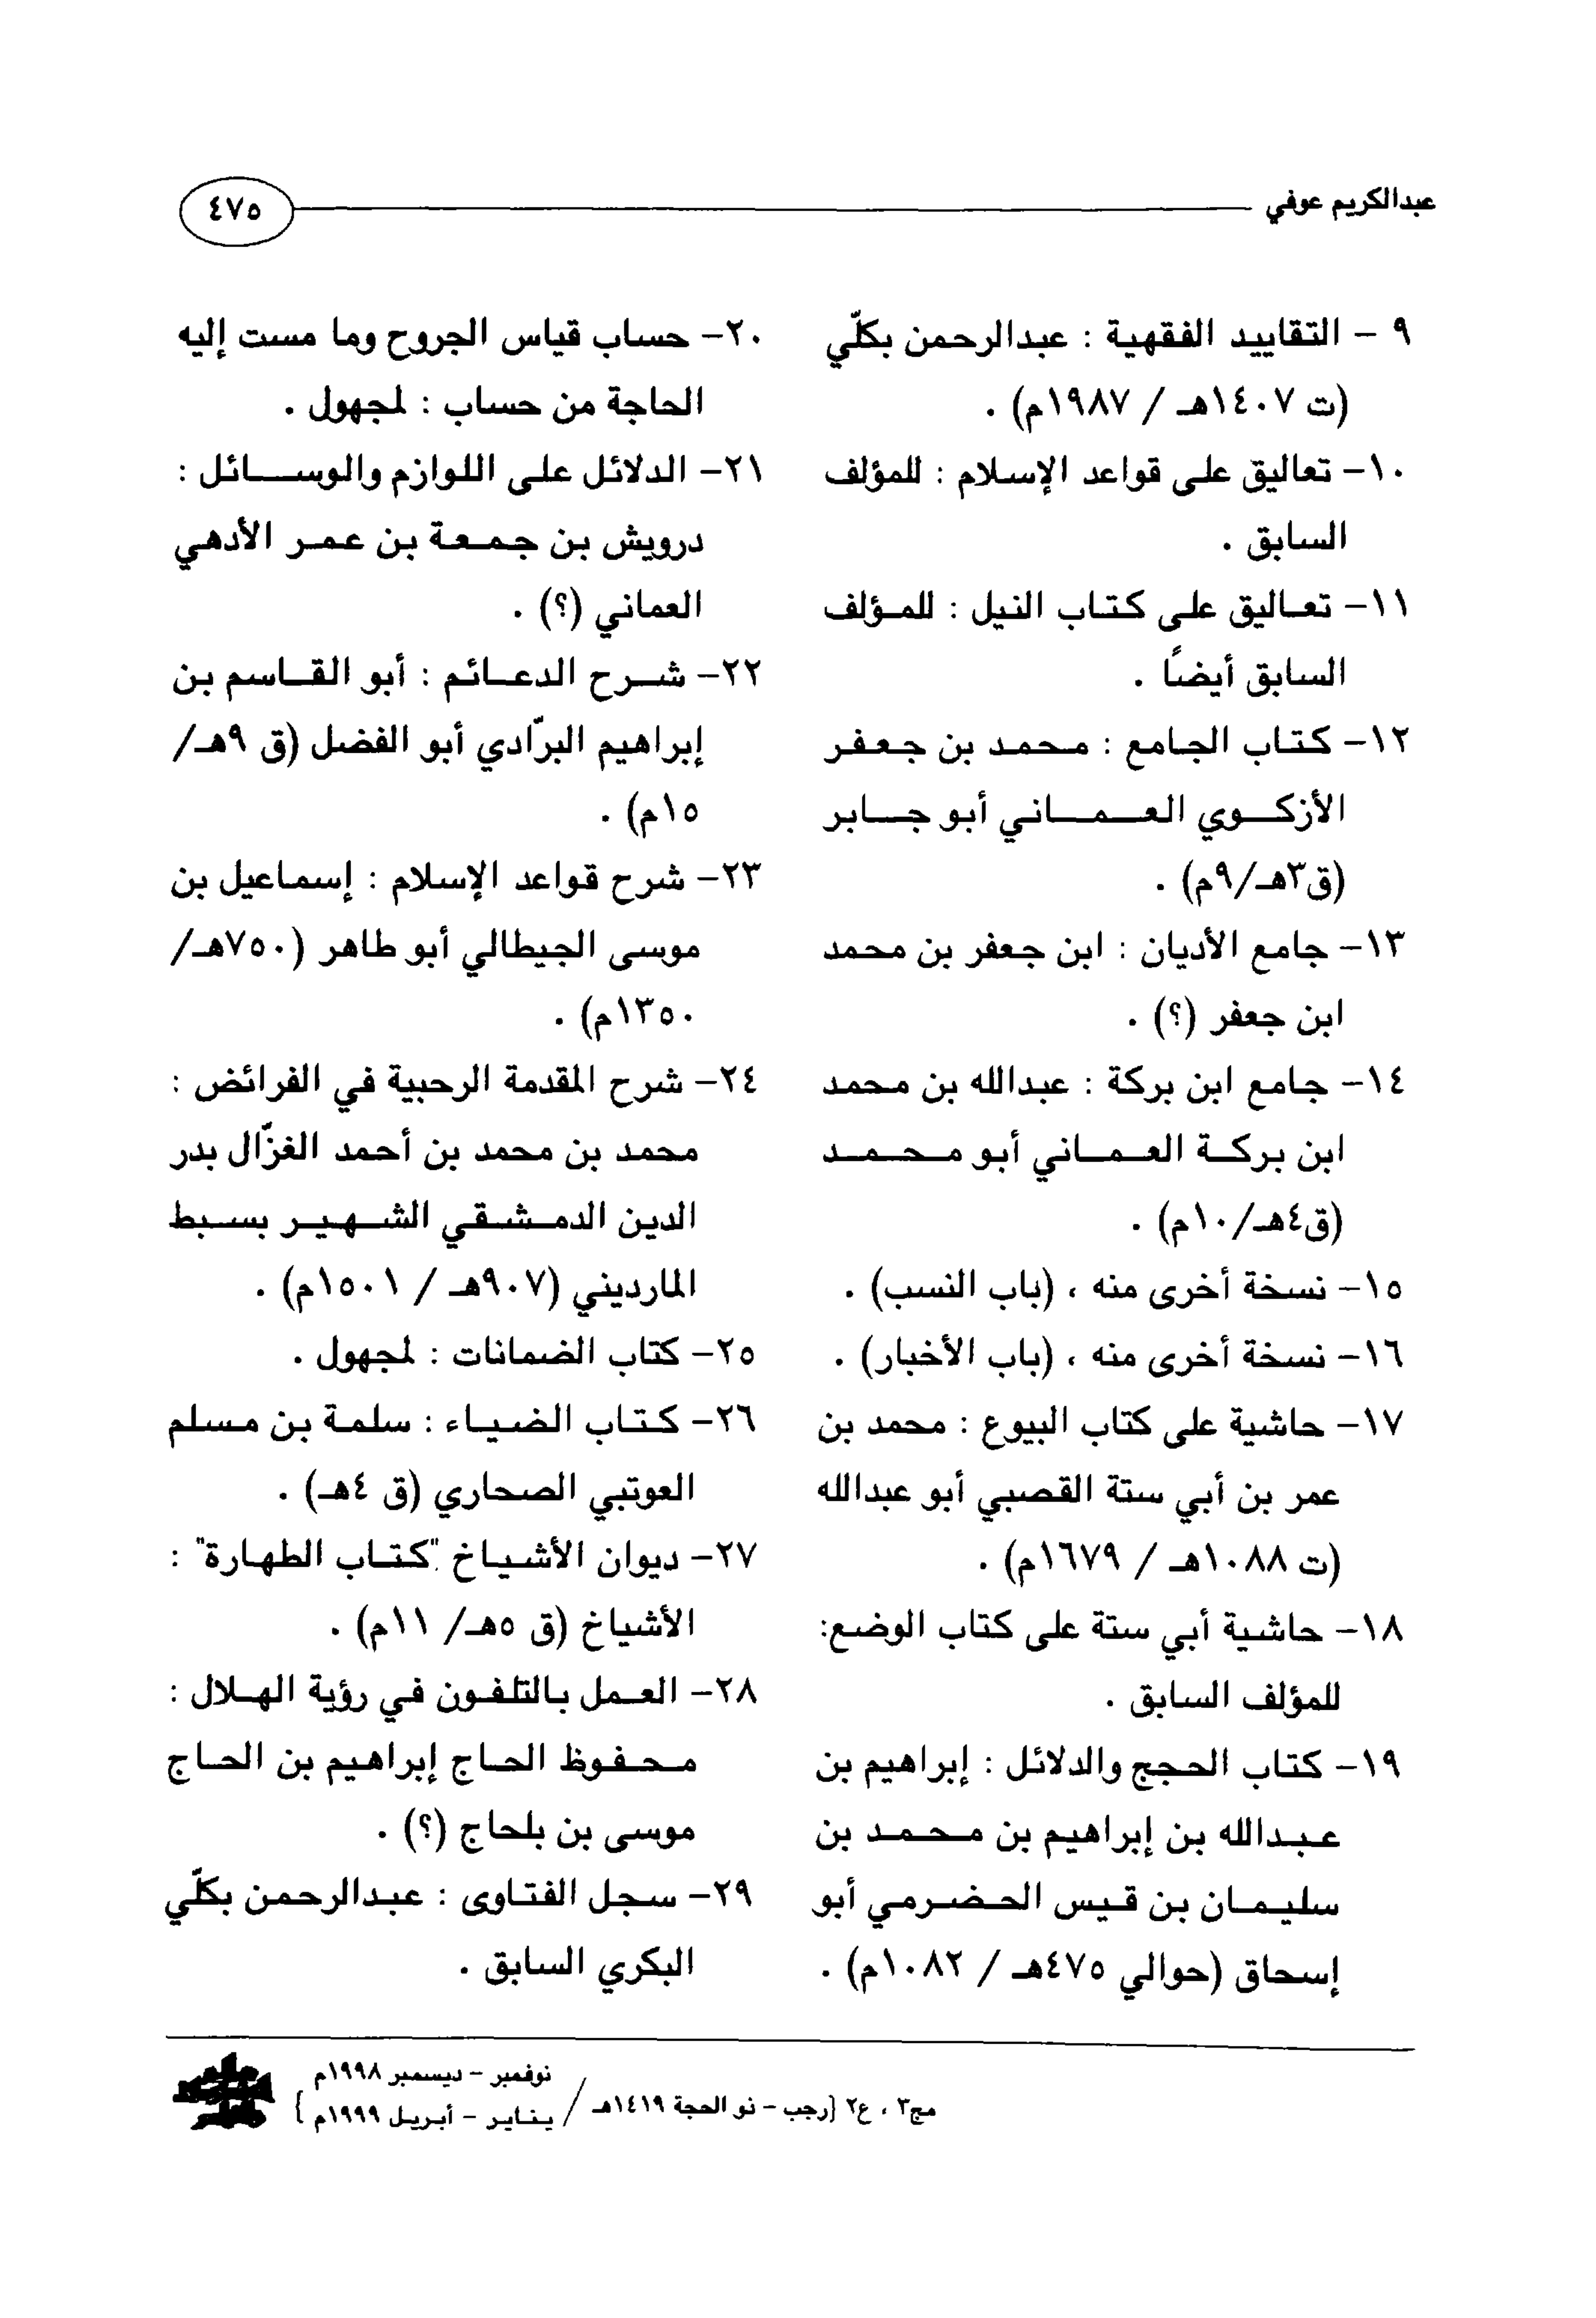 عبدالكريم عوفي
٤٧٥
٩ - التقاييد الفقهية : عبدالرحمن بكلّي
(ت ١٤٠٧هـ / ١٩٨٧م) .
١٠- تعاليق على قواعد الإسلام : للمؤلف
السابق .
١١- تعاليق على كتاب النيل : للمؤلف
السابق أيضاً .
١٢- كتاب الجامع : محمد بن جعفر
الأزكوي العماني أبو جابر
(ق٣هـ/٩م) .
١٣- جامع الأديان : ابن جعفر بن محمد
ابن جعفر (؟) .
١٤- جامع ابن بركة : عبدالله بن محمد
ابن بركة العماني أبو محمد
(ق٤هـ/١٠م) .
١٥- نسخة أخرى منه ، (باب النسب) .
١٦- نسخة أخرى منه ، (باب الأخبار) .
١٧- حاشية على كتاب البيوع : محمد بن
عمر بن أبي ستة القصبي أبو عبدالله
(ت ١٠٨٨هـ / ١٦٧٩م) .
١٨- حاشية أبي ستة على كتاب الوضع:
للمؤلف السابق .
١٩- كتاب الحجج والدلائل : إبراهيم بن
عبدالله بن إبراهيم بن محمد بن
سليمان بن قيس الحضرمي أبو
إسحاق (حوالي ٤٧٥هـ / ١٠٨٢م) .
٢٠- حساب قياس الجروح وما مست إليه
الحاجة من حساب : لمجهول .
٢١- الدلائل على اللوازم والوسائل :
درويش بن جمعة بن عمر الأدهي
العماني (؟) .
٢٢- شرح الدعائم : أبو القاسم بن
إبراهيم البرّادي أبو الفضل (ق ٩هـ/
١٥م) .
٢٣- شرح قواعد الإسلام : إسماعيل بن
موسى الجيطالي أبو طاهر (٧٥٠هـ/
١٣٥٠م) .
٢٤- شرح المقدمة الرحبية في الفرائض :
محمد بن محمد بن أحمد الغزّال بدر
الدين الدمشقي الشهير بسبط
المارديني (٩٠٧هـ / ١٥٠١م) .
٢٥- كتاب الضمانات : لمجهول .
٢٦- كتاب الضياء : سلمة بن مسلم
العوتبي الصحاري (ق ٤هـ) .
٢٧- ديوان الأشياخ "كتاب الطهارة" :
الأشياخ (ق ٥هـ/ ١١م) .
٢٨- العمل بالتلفون في رؤية الهلال :
محفوظ الحاج إبراهيم بن الحاج
موسى بن بلحاج (؟) .
٢٩- سجل الفتاوى : عبدالرحمن بكلّي
البكري السابق .
مج٣ ، ع٢ {رجب - ذو الحجة ١٤١٩هـ /
نوفمبر - ديسمبر ١٩٩٨م
يناير - أبريل ١٩٩٩م }